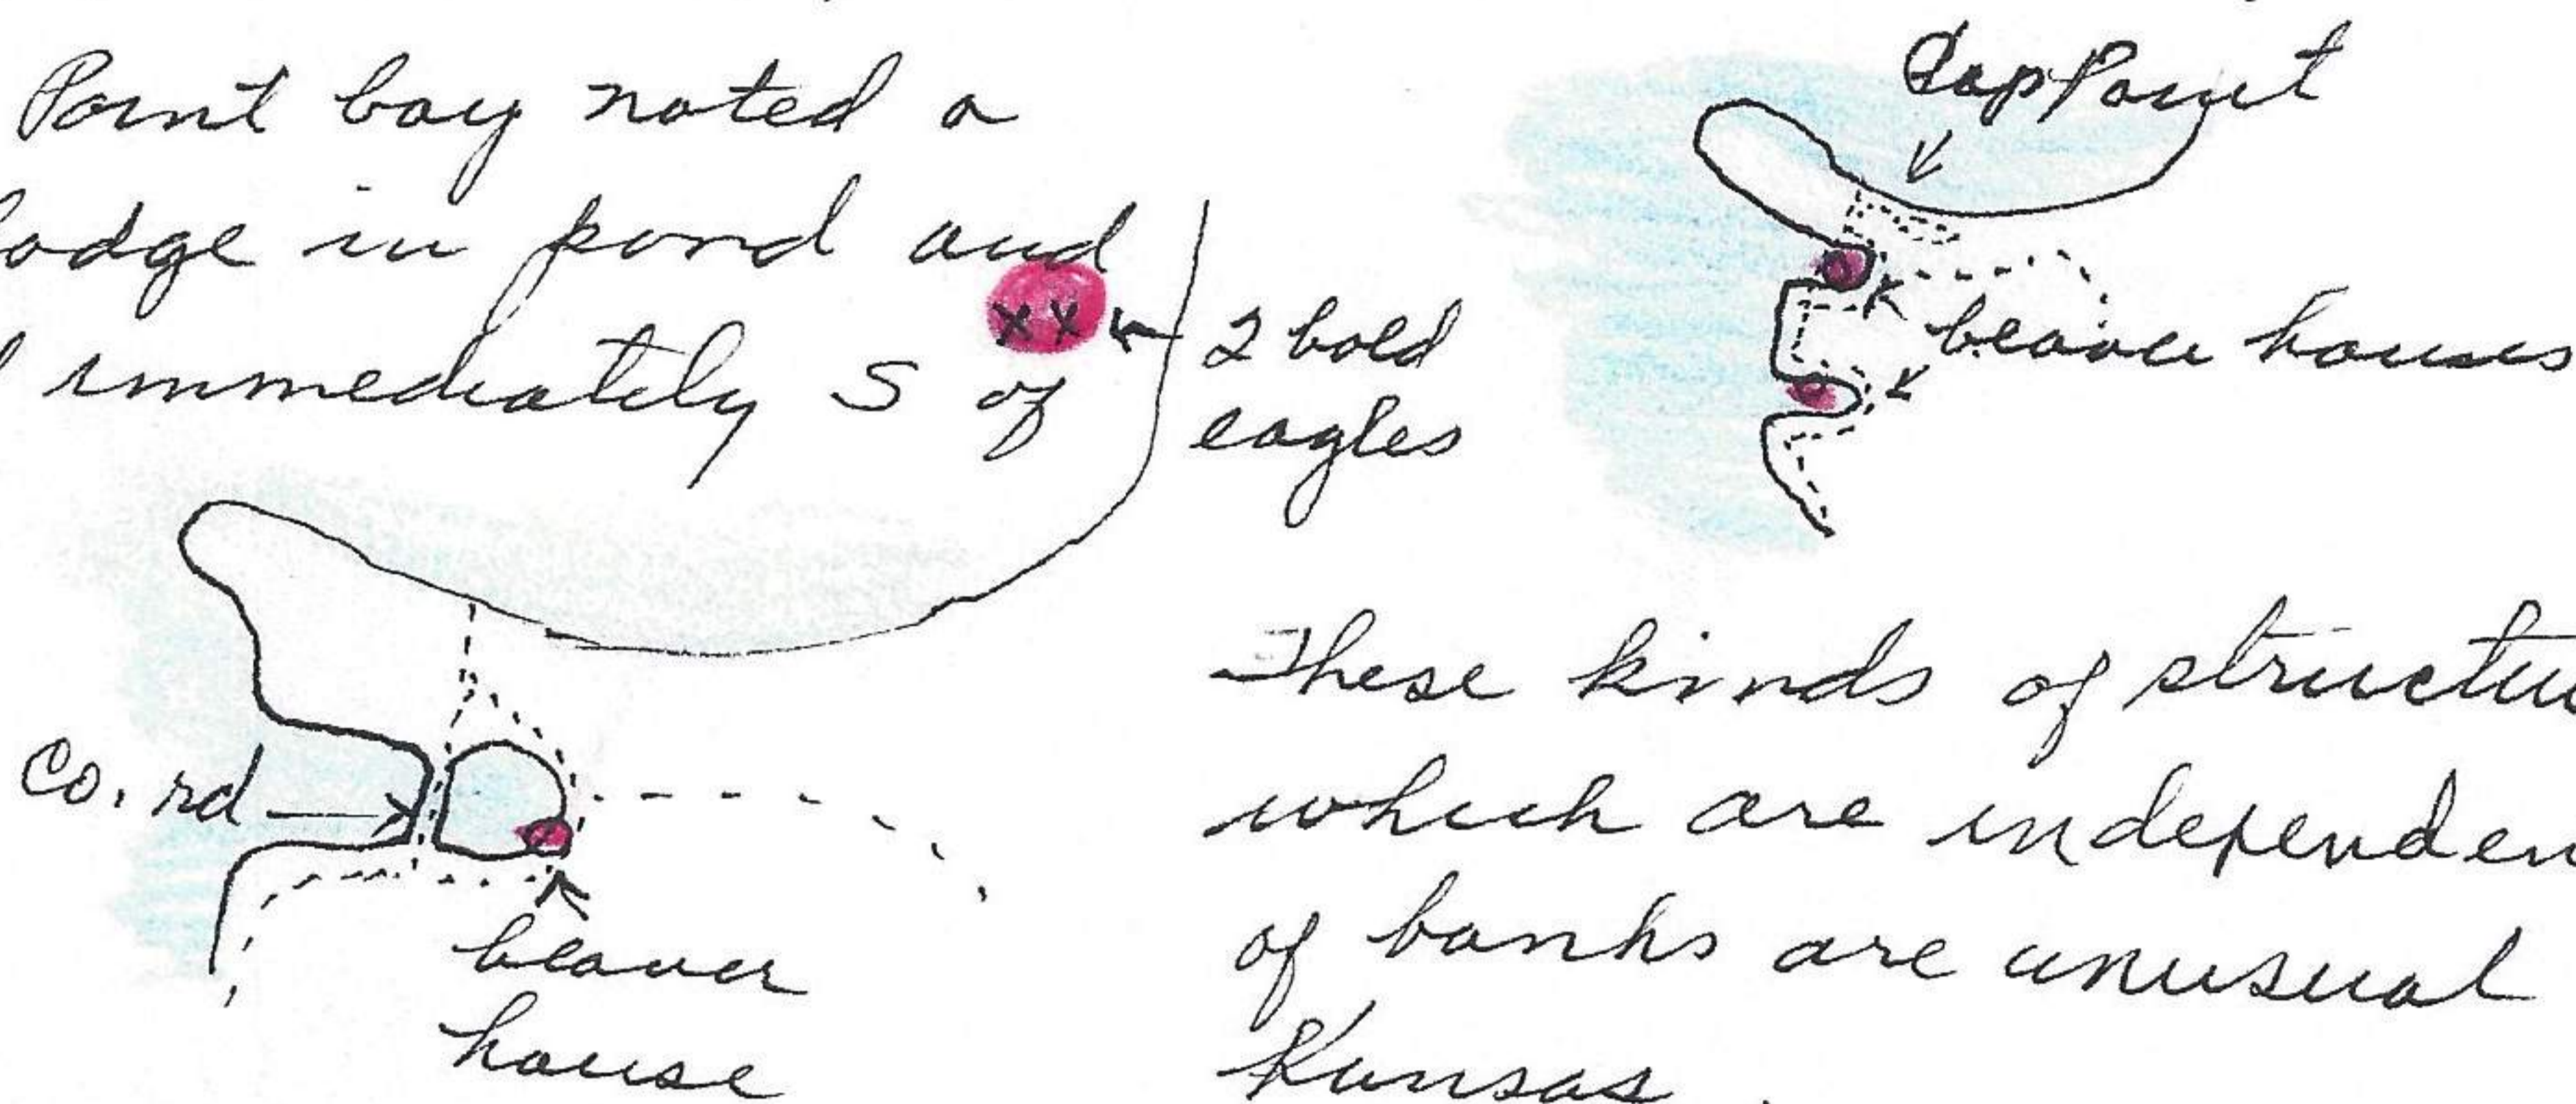 Point bay noted a
lodge in pond and
immediately S of
xx
2 bald
eagles
Co. rd
beaver
house
Point
beaver houses
These kinds of structu
which are independen
of banks are unusual
Kansas